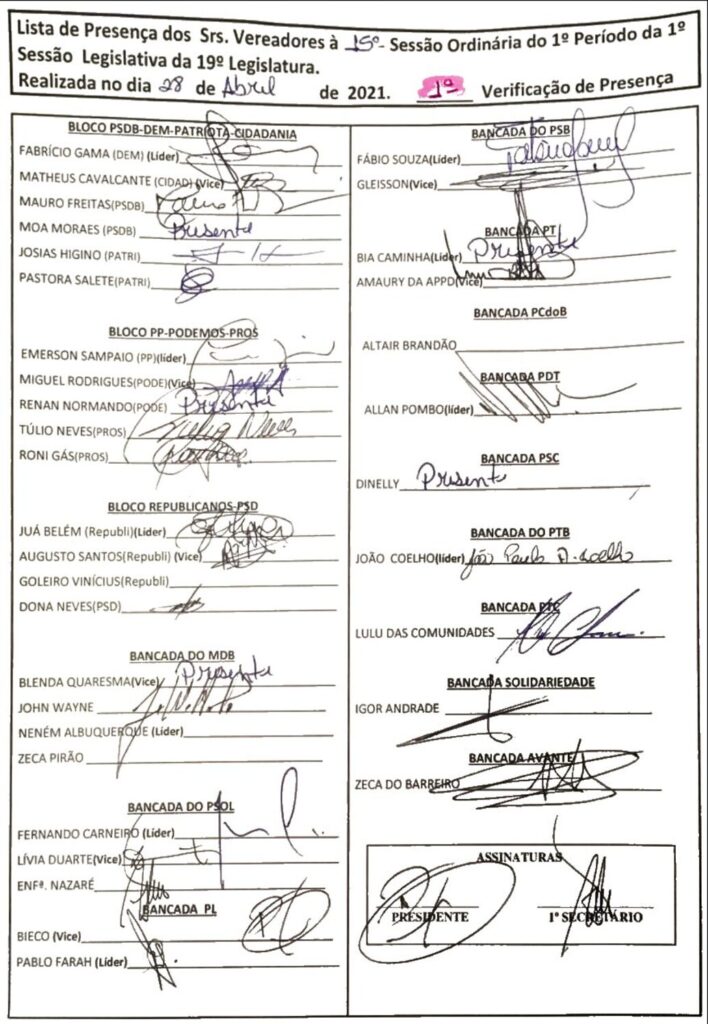 Lista de Presença dos Srs. Vereadores à 15º - Sessão Ordinária do 1º Período da 1º
Sessão Legislativa da 19º Legislatura.
Realizada no dia 28 de Abril de 2021. 1ª Verificação de Presença
BLOCO PSDB-DEM-PATRIOTA-CIDADANIA
FABRÍCIO GAMA (DEM) (Líder)
MATHEUS CAVALCANTE (CIDAD) (Vice)
MAURO FREITAS(PSDB)
MOA MORAES (PSDB) Presente
JOSIAS HIGINO (PATRI)
PASTORA SALETE(PATRI)
BLOCO PP-PODEMOS-PROS
EMERSON SAMPAIO (PP)(líder)
MIGUEL RODRIGUES(PODE)(Vice)
RENAN NORMANDO(PODE) Presente
TÚLIO NEVES(PROS) Tulio Neves
RONI GÁS(PROS)
BLOCO REPUBLICANOS-PSD
JUÁ BELÉM (Republi)(Líder)
AUGUSTO SANTOS(Republi) (Vice)
GOLEIRO VINÍCIUS(Republi)
DONA NEVES(PSD)
BANCADA DO MDB
BLENDA QUARESMA(Vice) Presente
JOHN WAYNE
NENÉM ALBUQUERQUE (Líder)
ZECA PIRÃO
BANCADA DO PSOL
FERNANDO CARNEIRO (Líder)
LÍVIA DUARTE(Vice)
ENFª. NAZARÉ
BANCADA PL
BIECO (Vice)
PABLO FARAH (Líder)
BANCADA DO PSB
FÁBIO SOUZA(Líder)
GLEISSON(Vice)
BANCADA PT
BIA CAMINHA(Líder) Presente
AMAURY DA APPD(Vice)
BANCADA PCdoB
ALTAIR BRANDÃO
BANCADA PDT
ALLAN POMBO(líder)
BANCADA PSC
DINELLY Presente
BANCADA DO PTB
JOÃO COELHO(líder) João Paulo A. Coelho
BANCADA PTC
LULU DAS COMUNIDADES
BANCADA SOLIDARIEDADE
IGOR ANDRADE
BANCADA AVANTE
ZECA DO BARREIRO
ASSINATURAS
PRESIDENTE 1º SECRETÁRIO